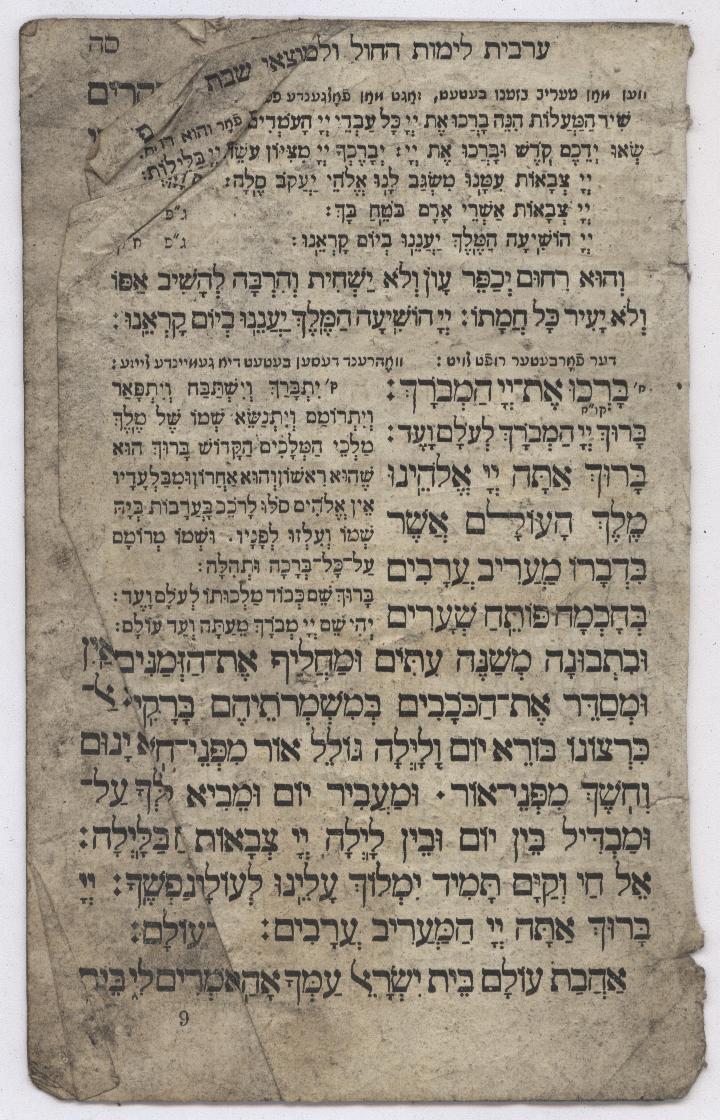 סה
ערבית לימות החול ולמוצאי שבת
ווען מאן מעריב בזמנו בעטעט, זאגט מאן פאלגענדע
שִׁיר הַמַּעֲלוֹת הִנֵּה בָּרְכוּ אֶת יְיָ כָּל עַבְדֵי יְיָ הָעֹמְדִים
שְׂאוּ יְדֵכֶם קֹדֶשׁ וּבָרְכוּ אֶת יְיָ: יְבָרֶכְךָ יְיָ מִצִּיּוֹן עֹשֵׂה
יְיָ צְבָאוֹת עִמָּנוּ מִשְׂגָּב לָנוּ אֱלֹהֵי יַעֲקֹב סֶלָה:
יְיָ צְבָאוֹת אַשְׁרֵי אָדָם בֹּטֵחַ בָּךְ: ג״פ
יְיָ הוֹשִׁיעָה הַמֶּלֶךְ יַעֲנֵנוּ בְיוֹם קָרְאֵנוּ: ג״פ
וְהוּא רַחוּם יְכַפֵּר עָוֹן וְלֹא יַשְׁחִית וְהִרְבָּה לְהָשִׁיב אַפּוֹ
וְלֹא יָעִיר כָּל חֲמָתוֹ: יְיָ הוֹשִׁיעָה הַמֶּלֶךְ יַעֲנֵנוּ בְיוֹם קָרְאֵנוּ:
דער פֿארבעטער רופֿט לויט:
בָּרְכוּ אֶת־יְיָ הַמְבֹרָךְ:
בָּרוּךְ יְיָ הַמְבֹרָךְ לְעוֹלָם וָעֶד:
בָּרוּךְ אַתָּה יְיָ אֱלֹהֵינוּ
מֶלֶךְ הָעוֹלָם אֲשֶׁר
בִּדְבָרוֹ מַעֲרִיב עֲרָבִים
בְּחָכְמָה פּוֹתֵחַ שְׁעָרִים
וואהרענד דעסען בעטעט דיא געמיינדע לייזע:
יִתְבָּרַךְ וְיִשְׁתַּבַּח וְיִתְפָּאַר
וְיִתְרוֹמַם וְיִתְנַשֵּׂא שְׁמוֹ שֶׁל מֶלֶךְ
מַלְכֵי הַמְּלָכִים הַקָּדוֹשׁ בָּרוּךְ הוּא
שֶׁהוּא רִאשׁוֹן וְהוּא אַחֲרוֹן וּמִבַּלְעָדָיו
אֵין אֱלֹהִים סֹלּוּ לָרֹכֵב בָּעֲרָבוֹת בְּיָהּ
שְׁמוֹ וְעִלְזוּ לְפָנָיו. וּשְׁמוֹ מְרוֹמָם
עַל־כָּל־בְּרָכָה וּתְהִלָּה:
בָּרוּךְ שֵׁם כְּבוֹד מַלְכוּתוֹ לְעוֹלָם וָעֶד:
יְהִי שֵׁם יְיָ מְבֹרָךְ מֵעַתָּה וְעַד עוֹלָם:
וּבִתְבוּנָה מְשַׁנֶּה עִתִּים וּמַחֲלִיף אֶת־הַזְּמַנִּים
וּמְסַדֵּר אֶת־הַכֹּכָבִים בְּמִשְׁמְרֹתֵיהֶם בָּרָקִי
כִּרְצוֹנוֹ בּוֹרֵא יוֹם וָלָיְלָה גּוֹלֵל אוֹר מִפְּנֵי־ יָנוּם
וְחֹשֶׁךְ מִפְּנֵי־אוֹר. וּמַעֲבִיר יוֹם וּמֵבִיא לְךָ עַל־
וּמַבְדִּיל בֵּין יוֹם וּבֵין לָיְלָה יְיָ צְבָאוֹת בַּלָּיְלָה:
אֵל חַי וְקַיָּם תָּמִיד יִמְלוֹךְ עָלֵינוּ לְעוֹלָ נַפְשֶׁךָ: יְיָ
בָּרוּךְ אַתָּה יְיָ הַמַּעֲרִיב עֲרָבִים: עוֹלָם:
אַהֲבַת עוֹלָם בֵּית יִשְׂרָאֵל עַמְּךָ
9